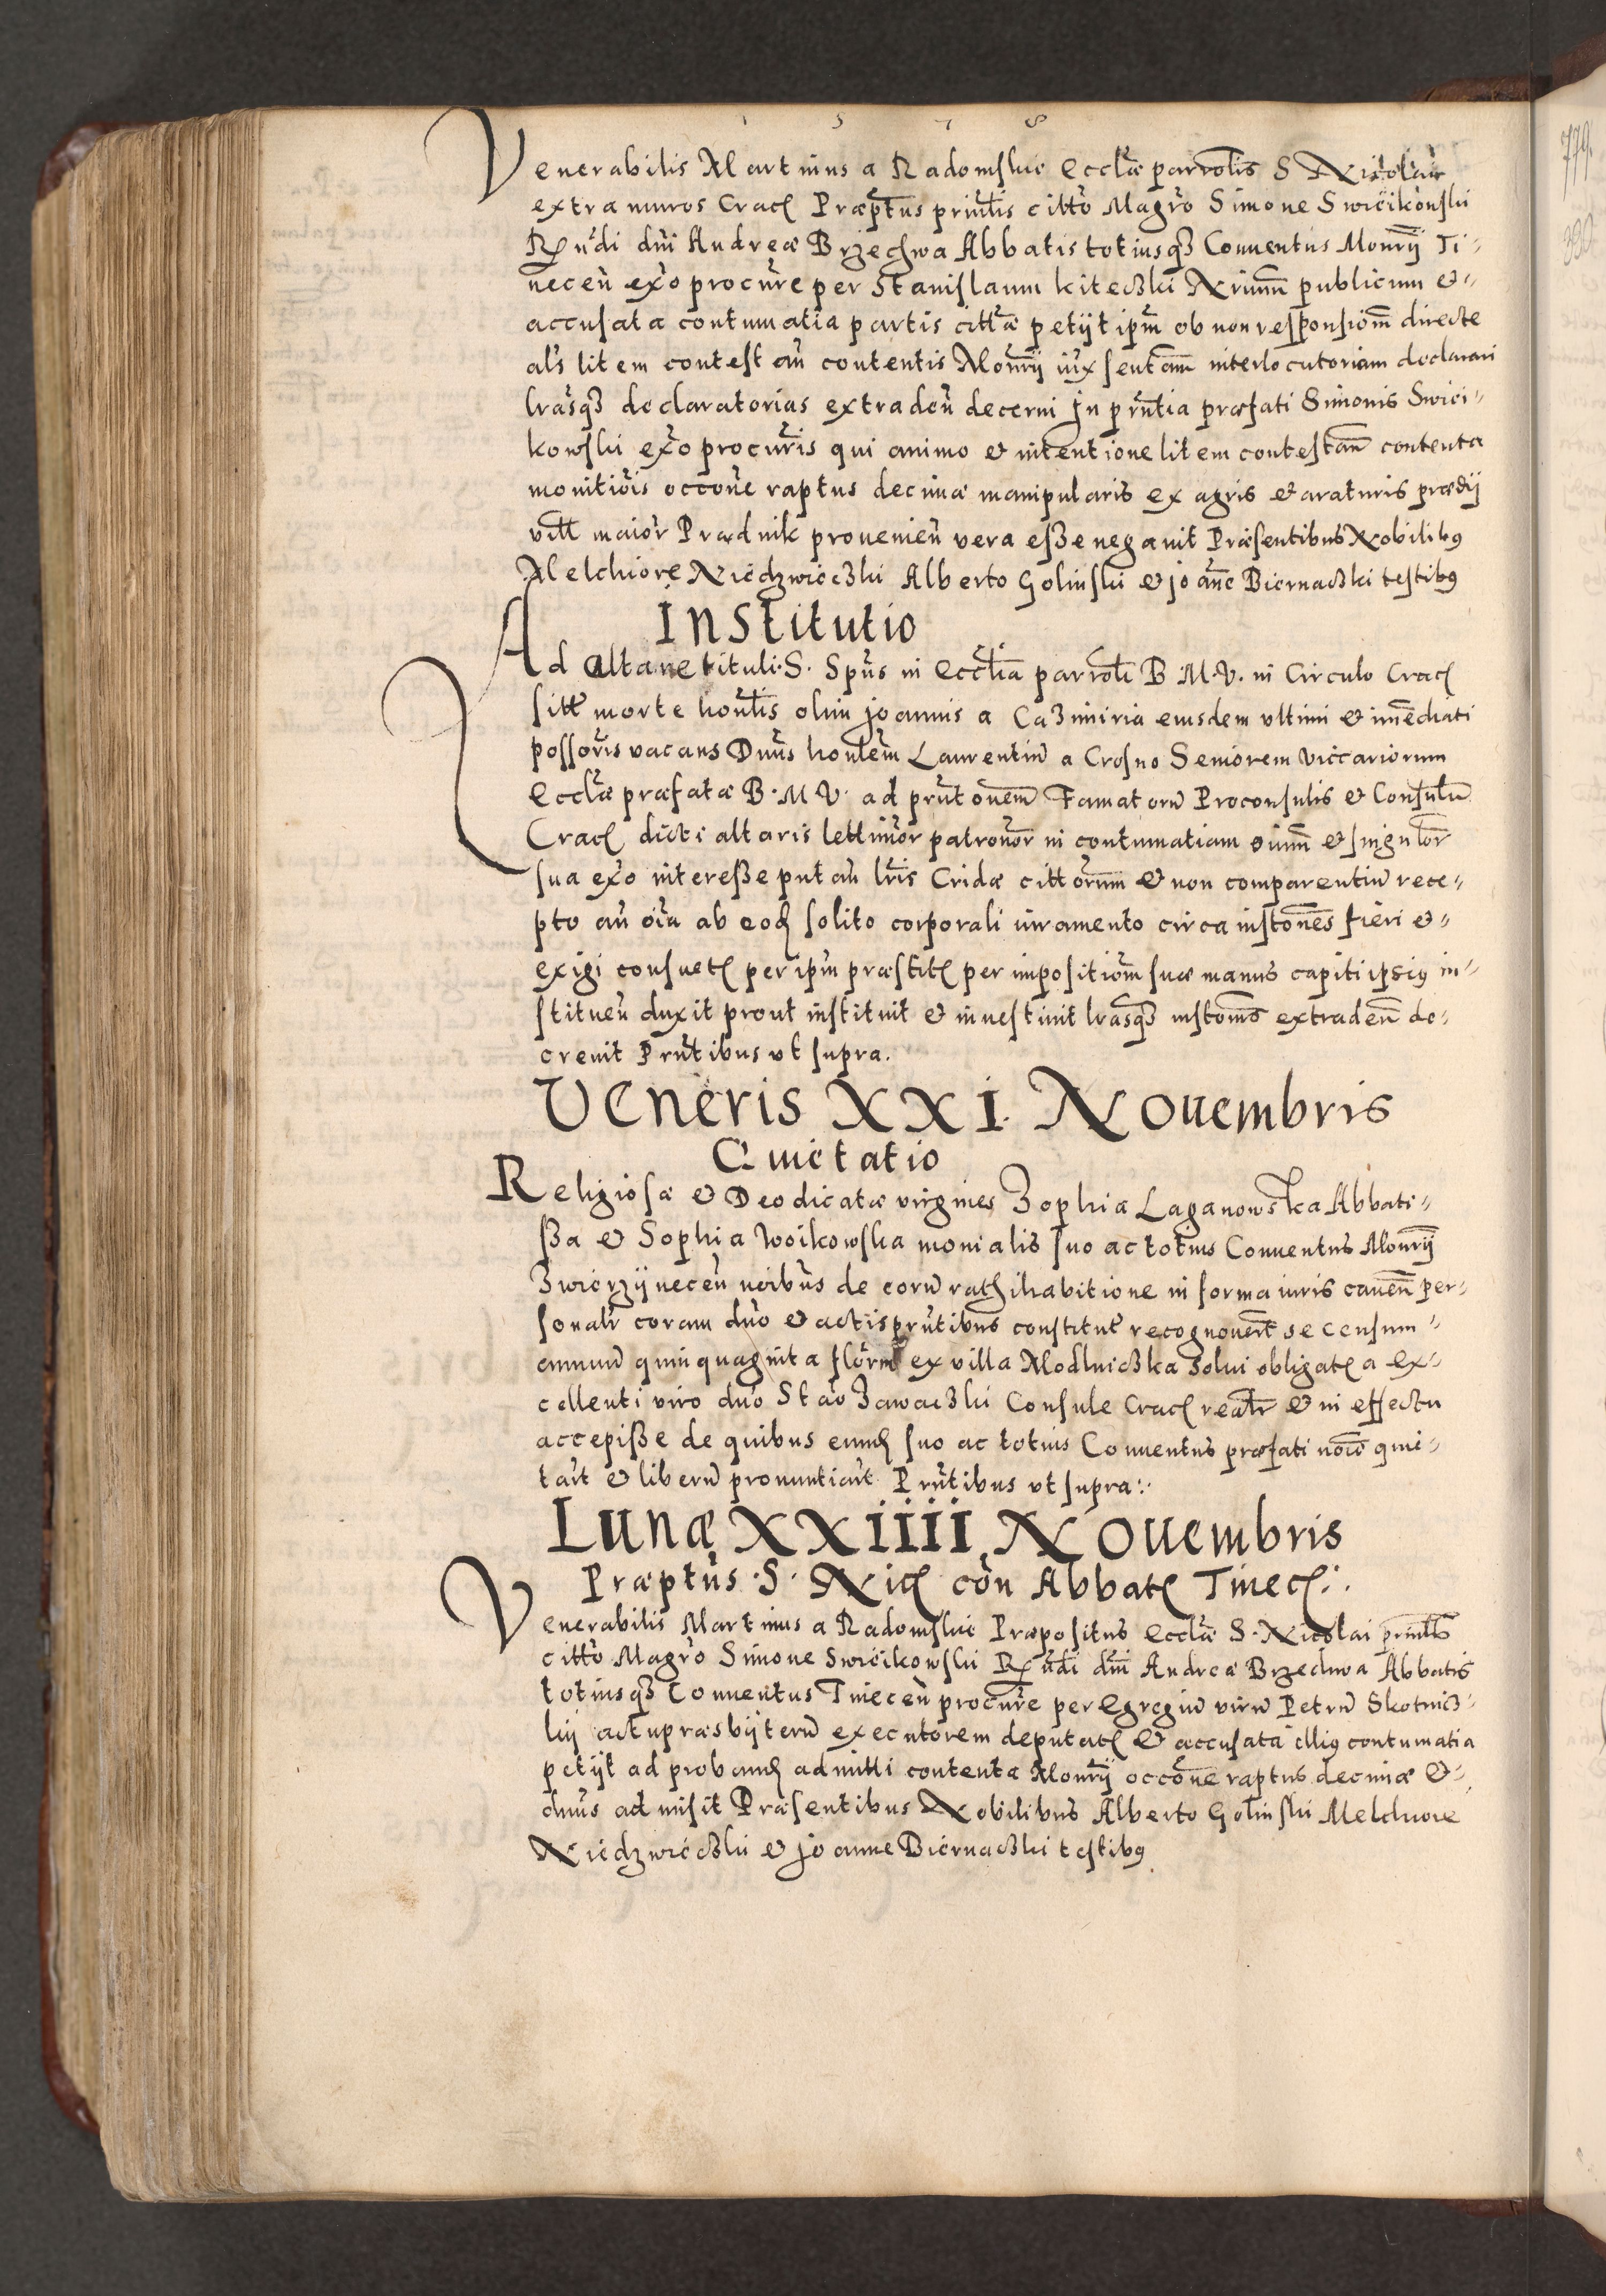 1 5 7 8
Venerabilis Martinus a Radomskie Ecclæ parrolis S Nicolai
extra muros Crac Præptus prinlis citto Magro Simone Swicikowski
Rndi dni Andreæ Brzechwa Abbatis totiusqз Conuentus Monrij Ti„
necen exo procure per Stanislaum kiteczki Nrium publicum et„
accusata contumatia partis cittæ petijt ipm ob non responsiom directe
als litem contestan contentis Monrij iux sentam interlocutoriam declarari
lrasqз declaratorias extraden decerni Jn prntia præfati Simonis Swici„
kowski exo procuris qui animo et intentione litem contestan contenta
monitiois occone raptus decimæ manipularis ex agris et araturis prædij
vill maior Prædnik prouenien vera esse negauit Præsentibus Nobilibus
Melchiore Niedzwieczki Alberto Golinski et joane Biernaczki testibus
Institutio
Ad Altare tituli S. Spus in Ecclia parroli B M. V. in Circulo Crac
sitt morte honlis olim joannis a Cazimiria eiusdem vltimi et imediati
possoris vacans Dnus honlem Laurentiu a Crosno Seniorem viccariorum
Ecclæ præfatæ B. M V. ad prntonem Famatoru Proconsulis et Consulu
Crac dicti altaris lettimor patronor in contumatiam oium et singulor
sua exo interesse putan lris Cridæ cittorum et non comparentiu rece„
pto an oia ab eod solito corporali iuramento circa instones fieri et„
exigi consuet per ipm præstit per impositiom suæ manus capiti ipsius in„
stituen duxit prout instituit et inuestiuit lrasqз instonis extraden de„
creuit Prntibus vt supra.
Veneris XXI. Nouembris
Quietatio
Religiosæ et Deo dicatæ virgines Zophia Laganowska Abbati„
ssa et Sophia Woikowska monialis suo ac totius Conuentus Monrij
Zwierzijnecen noibus de coru rathihabitione in forma iuris cauen per„
sonalr coram dno et actis prntibus constitut recognouert se censum„
annuu quinquaginta florm ex villa Modlniczka Solui obligat a ex„
cellenti viro dno Stao Zawaczki Consule Crac realr et in effectu
accepisse de quibus eund suo ac totius Conuentus præfati noie quie„
tart et liberu pronuntiart Prntibus vt supra:.
Lunæ XXIIII Nouembris
Præptus S. Nic con Abbat Tinec:.
Venerabilis Martinus a Radomskie Præpositus Ecclæ S. Nicolai prinlis
citto Magro Simone Swicikowski Rndi dni Andreæ Brzechwa Abbatis
totiusqз Conuentus Tinecen procure per Egregiu viru Petru Skotnicz„
kij actu præsbijteru executorem deputat et accusata illius contumatia
petijt ad proband admitti contenta Monrij occone raptus decimæ et„
dnus admisit Præsentibus Nobilibus Alberto Golinski Melchiore
Niedzwieczki et joanne Biernaczki testibus
779.
390.